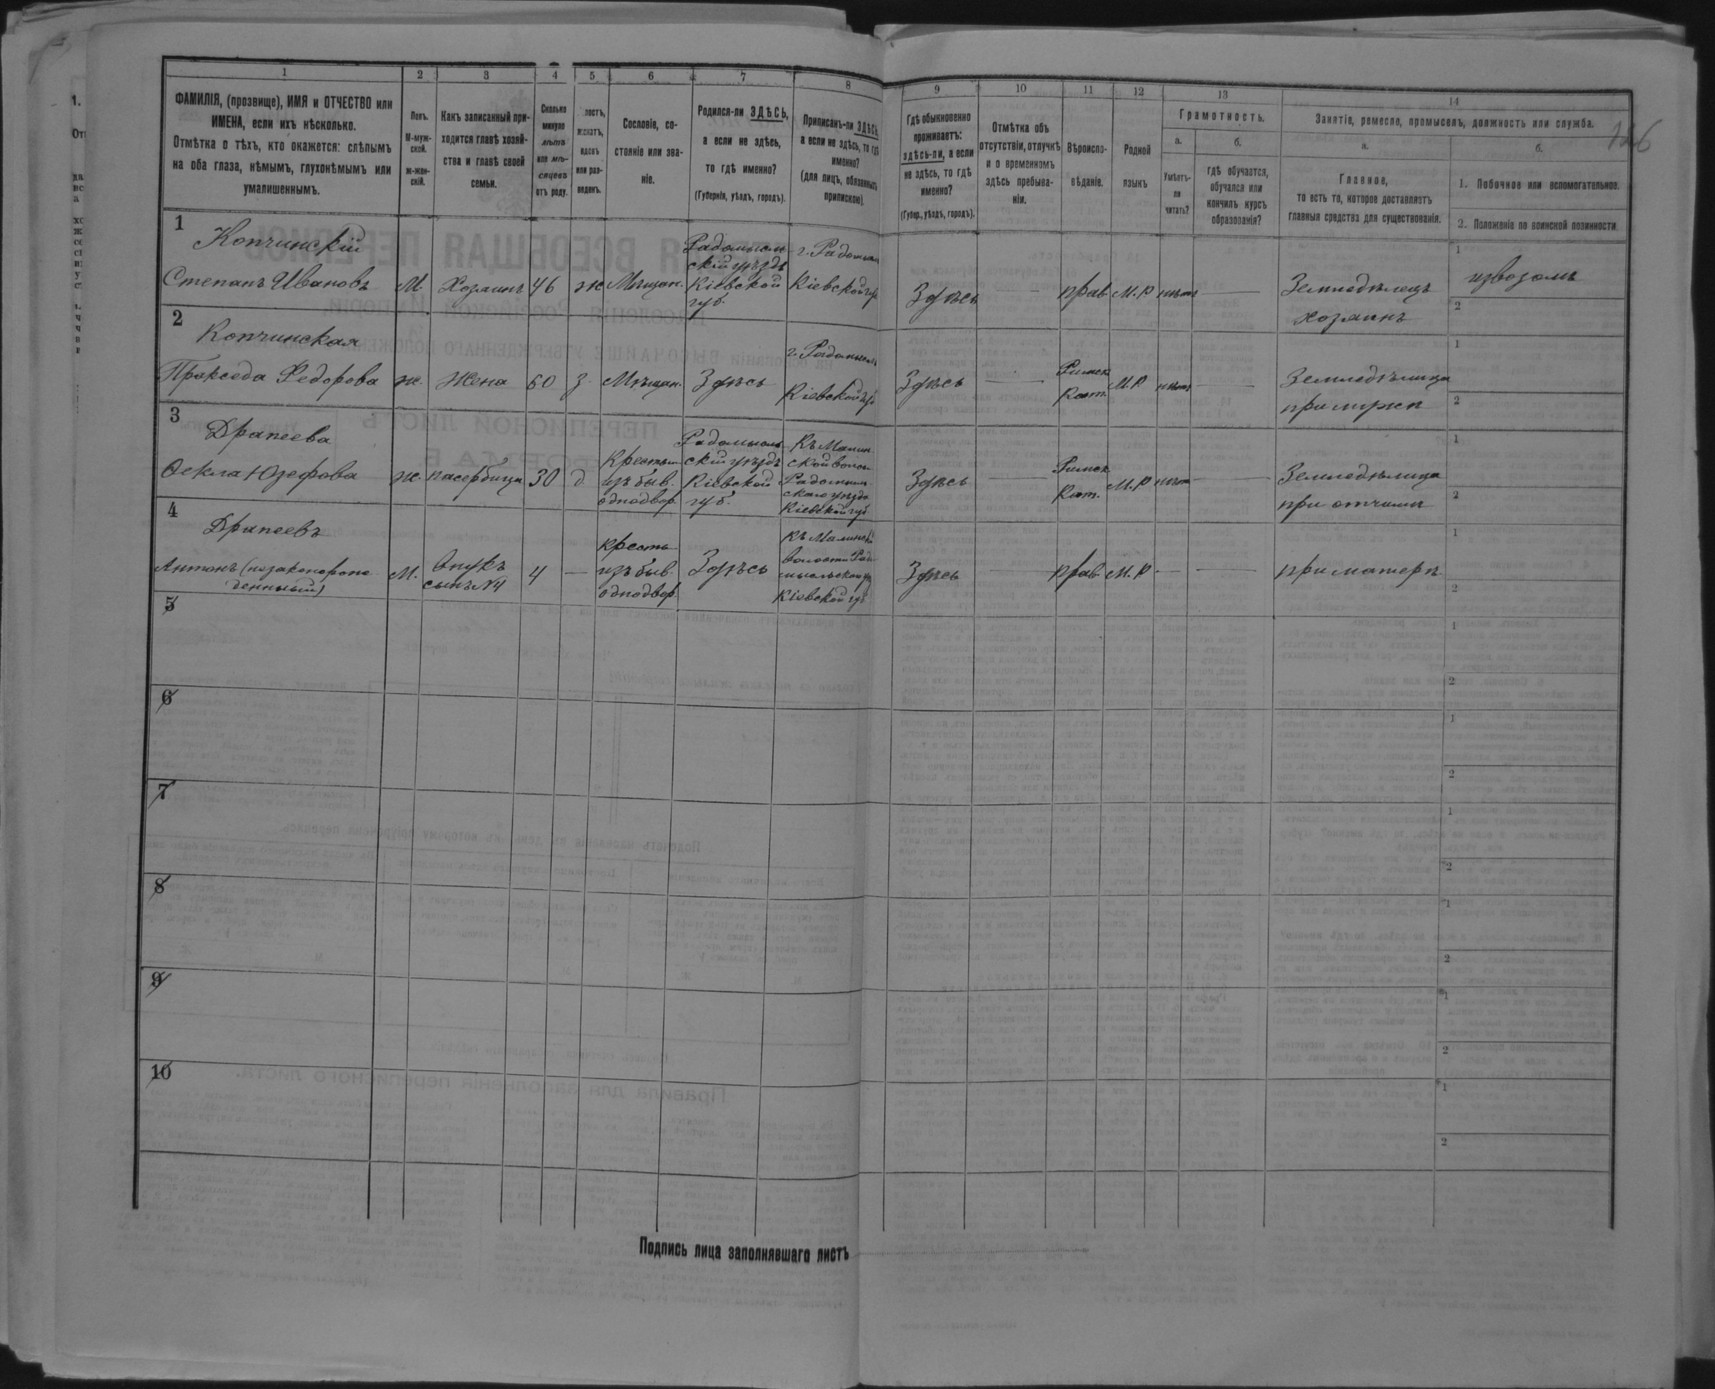 1 2 3 4 5 6 7 8 9 10 11 12 13 14
126
ФАМИЛІЯ, (прозвище), ИМЯ и ОТЧЕСТВО или
ИМЕНА, если ихъ нѣсколько.
Отмѣтка о тѣхъ, кто окажется: слѣпымъ
на оба глаза, нѣмымъ, глухонѣмымъ или
умалишеннымъ.
Полъ.
М-муж-
ской.
ж-жен-
скій.
Какъ записанный при-
ходится главѣ хозяй-
ства и главѣ своей
семьи.
Сколько
минуло
лѣтъ
или мѣ-
сяцевъ
отъ роду.
лостъ,
женатъ,
вдовъ
или раз-
веденъ.
Сословіе, со-
стояніе или зва-
ніе.
Родился-ли ЗДѢСЬ,
а если не здѣсь,
то гдѣ именно?
(Губернія, уѣздъ, городъ).
Приписанъ-ли ЗДѢСЬ,
а если не здѣсь, то гдѣ
именно?
(для лицъ, обязанныхъ
припискою).
Гдѣ обыкновенно
проживаетъ:
здѣсь-ли, а если
не здѣсь, то гдѣ
именно?
(Губер., уѣздъ, городъ).
Отмѣтка объ
отсутствіи, отлучкѣ
и о временномъ
здѣсь пребыва-
ніи.
Вѣроиспо-
вѣданіе.
Родной
языкъ
Грамотность.
а.
Умѣетъ-
ли
читать?
б.
гдѣ обучается,
обучался или
кончилъ курсъ
образованія?
Занятіе, ремесло, промыселъ, должность или служба.
а.
Главное,
то есть то, которое доставляетъ
главныя средства для существованія.
б.
1. Побочное или вспомогательное.
2. Положеніе по воинской повинности.
1
Копчинскій
Степанъ Ивановъ
М
Хозяинъ
46
ж
Мѣщан.
Радомысль
скій уѣздъ
Кіевской
губ.
г. Радомысль
Кіевской губ
Здѣсь
—
прав
М.Р
нѣтъ
—
Земледѣлецъ
хозяинъ
1
извозомъ
2
2
Копчинская
Прокседа Федорова
ж.
Жена
60
З.
Мѣщан.
Здѣсь
г. Радомысль
Кіевской губ
Здѣсь
—
Римск
Кат.
М.Р
нѣтъ
—
Земледѣлица
при мужѣ
1
2
3
Драпеева
Ѳекла Юзефова
ж.
пасербица
30
д
Крестьян
изъ быв.
однодвор.
Радомысль
скій уѣздъ
Кіевской
губ.
Къ Малин
ской волос
Радомысль
скаго уѣзда
Кіевской губ
Здѣсь
—
Римск
Кат.
М.Р
нѣтъ
Земледѣлица
при отчимѣ
1
2
4
Драпеевъ
Антонъ (незаконорож
денный)
М.
внукъ
сынъ №4
4
—
крестьян
изъ быв.
однодвор.
Здѣсь
Къ Малинской
волости Радо
мысльскаго уѣ
Кіевской губ
Здѣсь
—
прав
М.Р
—
—
при матери
1
2
5
1
2
6
1
2
7
1
2
8
1
2
9
1
2
10
1
2
Подпись лица заполнявшаго листъ